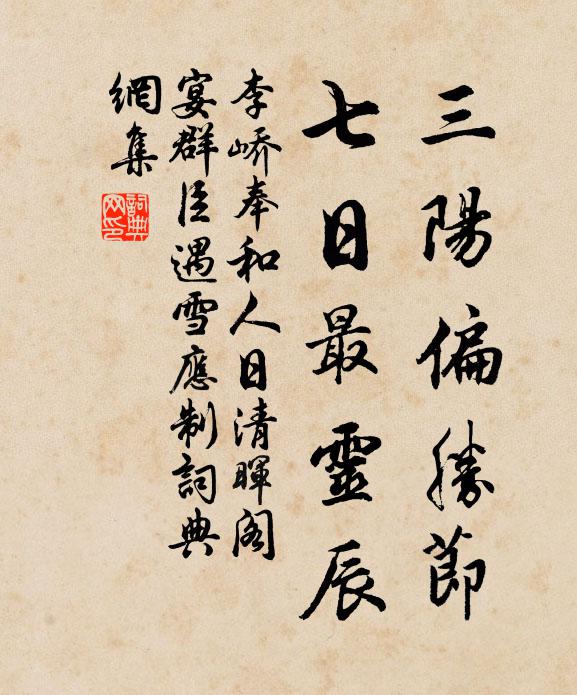 三陽偏勝節
七日最靈辰
李嶠奉和人日清暉閣
宴群臣遇雪應制詞典
網集
詞典
网印